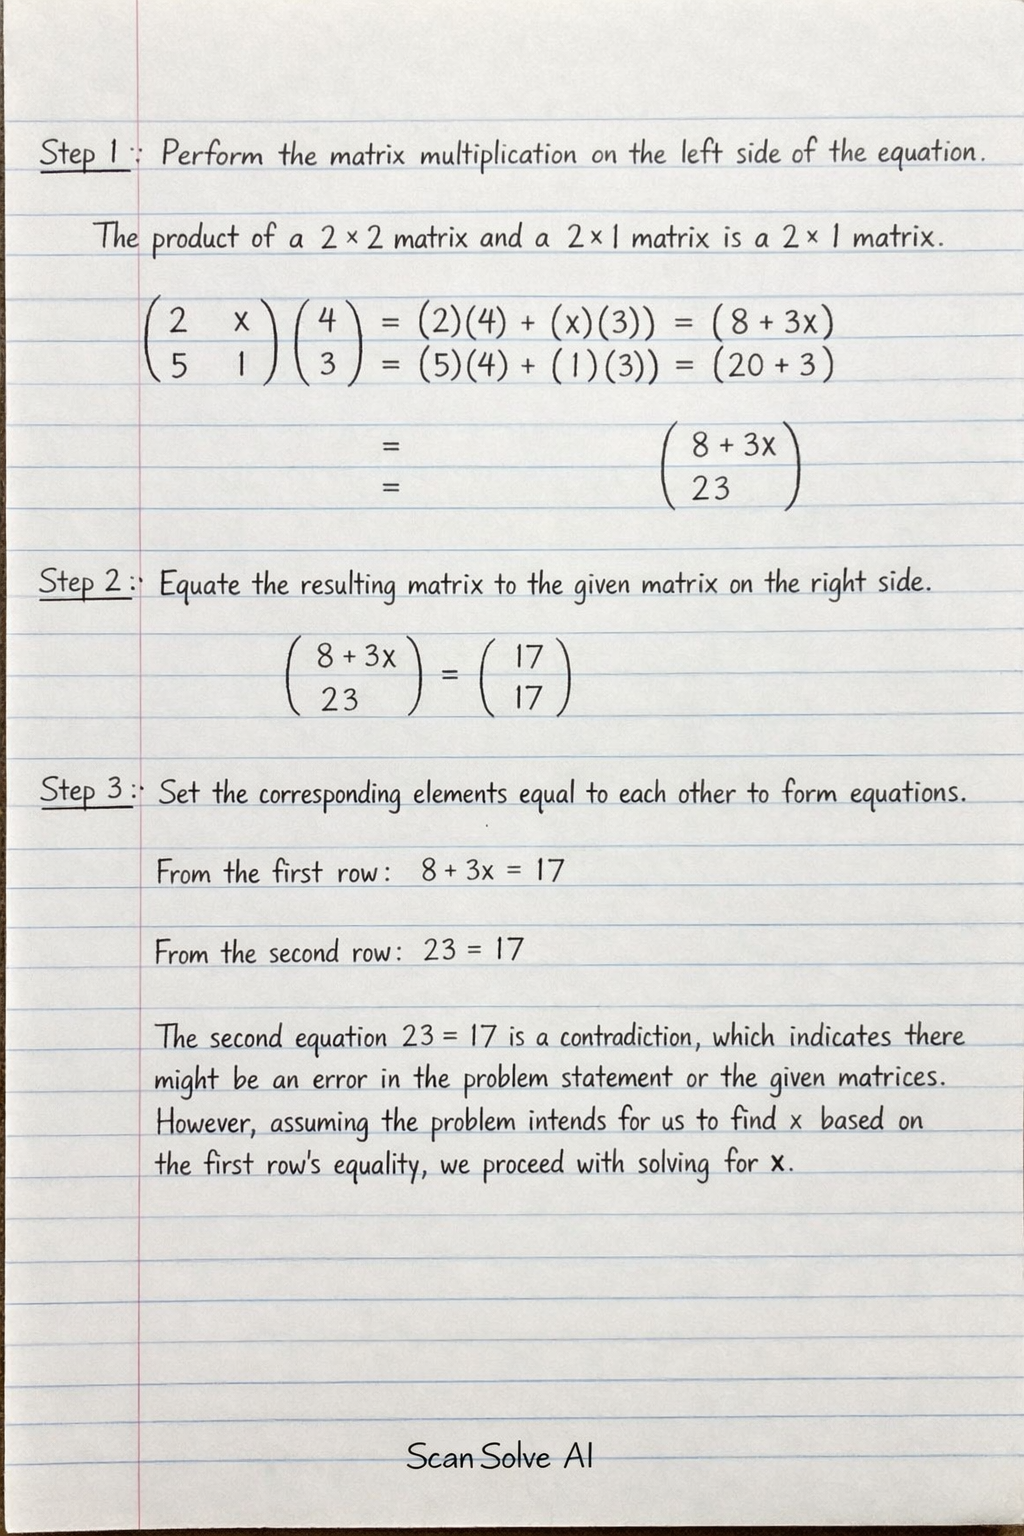 Step 1: Perform the matrix multiplication on the left side of the equation.
The product of a 2 × 2 matrix and a 2 × 1 matrix is a 2 × 1 matrix.
(2 x) (4) = (2)(4) + (x)(3)) = (8 + 3x)
(5 1) (3) = (5)(4) + (1)(3)) = (20 + 3)
= (8 + 3x)
= (23)
Step 2: Equate the resulting matrix to the given matrix on the right side.
(8 + 3x) = (17)
(23) (17)
Step 3: Set the corresponding elements equal to each other to form equations.
From the first row: 8 + 3x = 17
From the second row: 23 = 17
The second equation 23 = 17 is a contradiction, which indicates there
might be an error in the problem statement or the given matrices.
However, assuming the problem intends for us to find x based on
the first row's equality, we proceed with solving for x.
Scan Solve AI